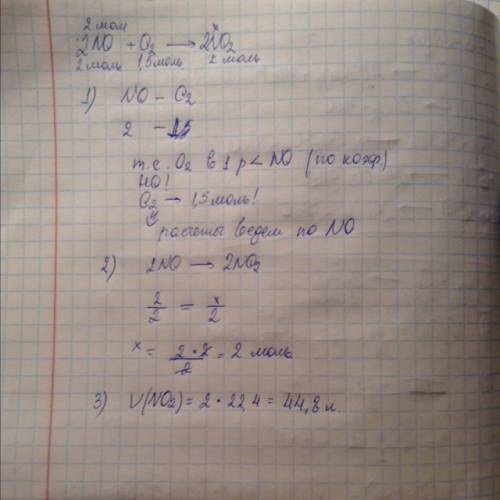 2 мол x
2NO + O₂ → 2NO₂
2 моль 1,5 моль 2 моль
1) NO – O₂
2 – 1,5
т.е. O₂ в 1 р < NO (по коэф.)
НО!
O₂ → 1,5 моль!
расчеты ведем по NO
2) 2NO → 2NO₂
2/2 = x/2
x = 2 · 2/2 = 2 моль
3) V(NO₂) = 2 · 22,4 = 44,8 л.